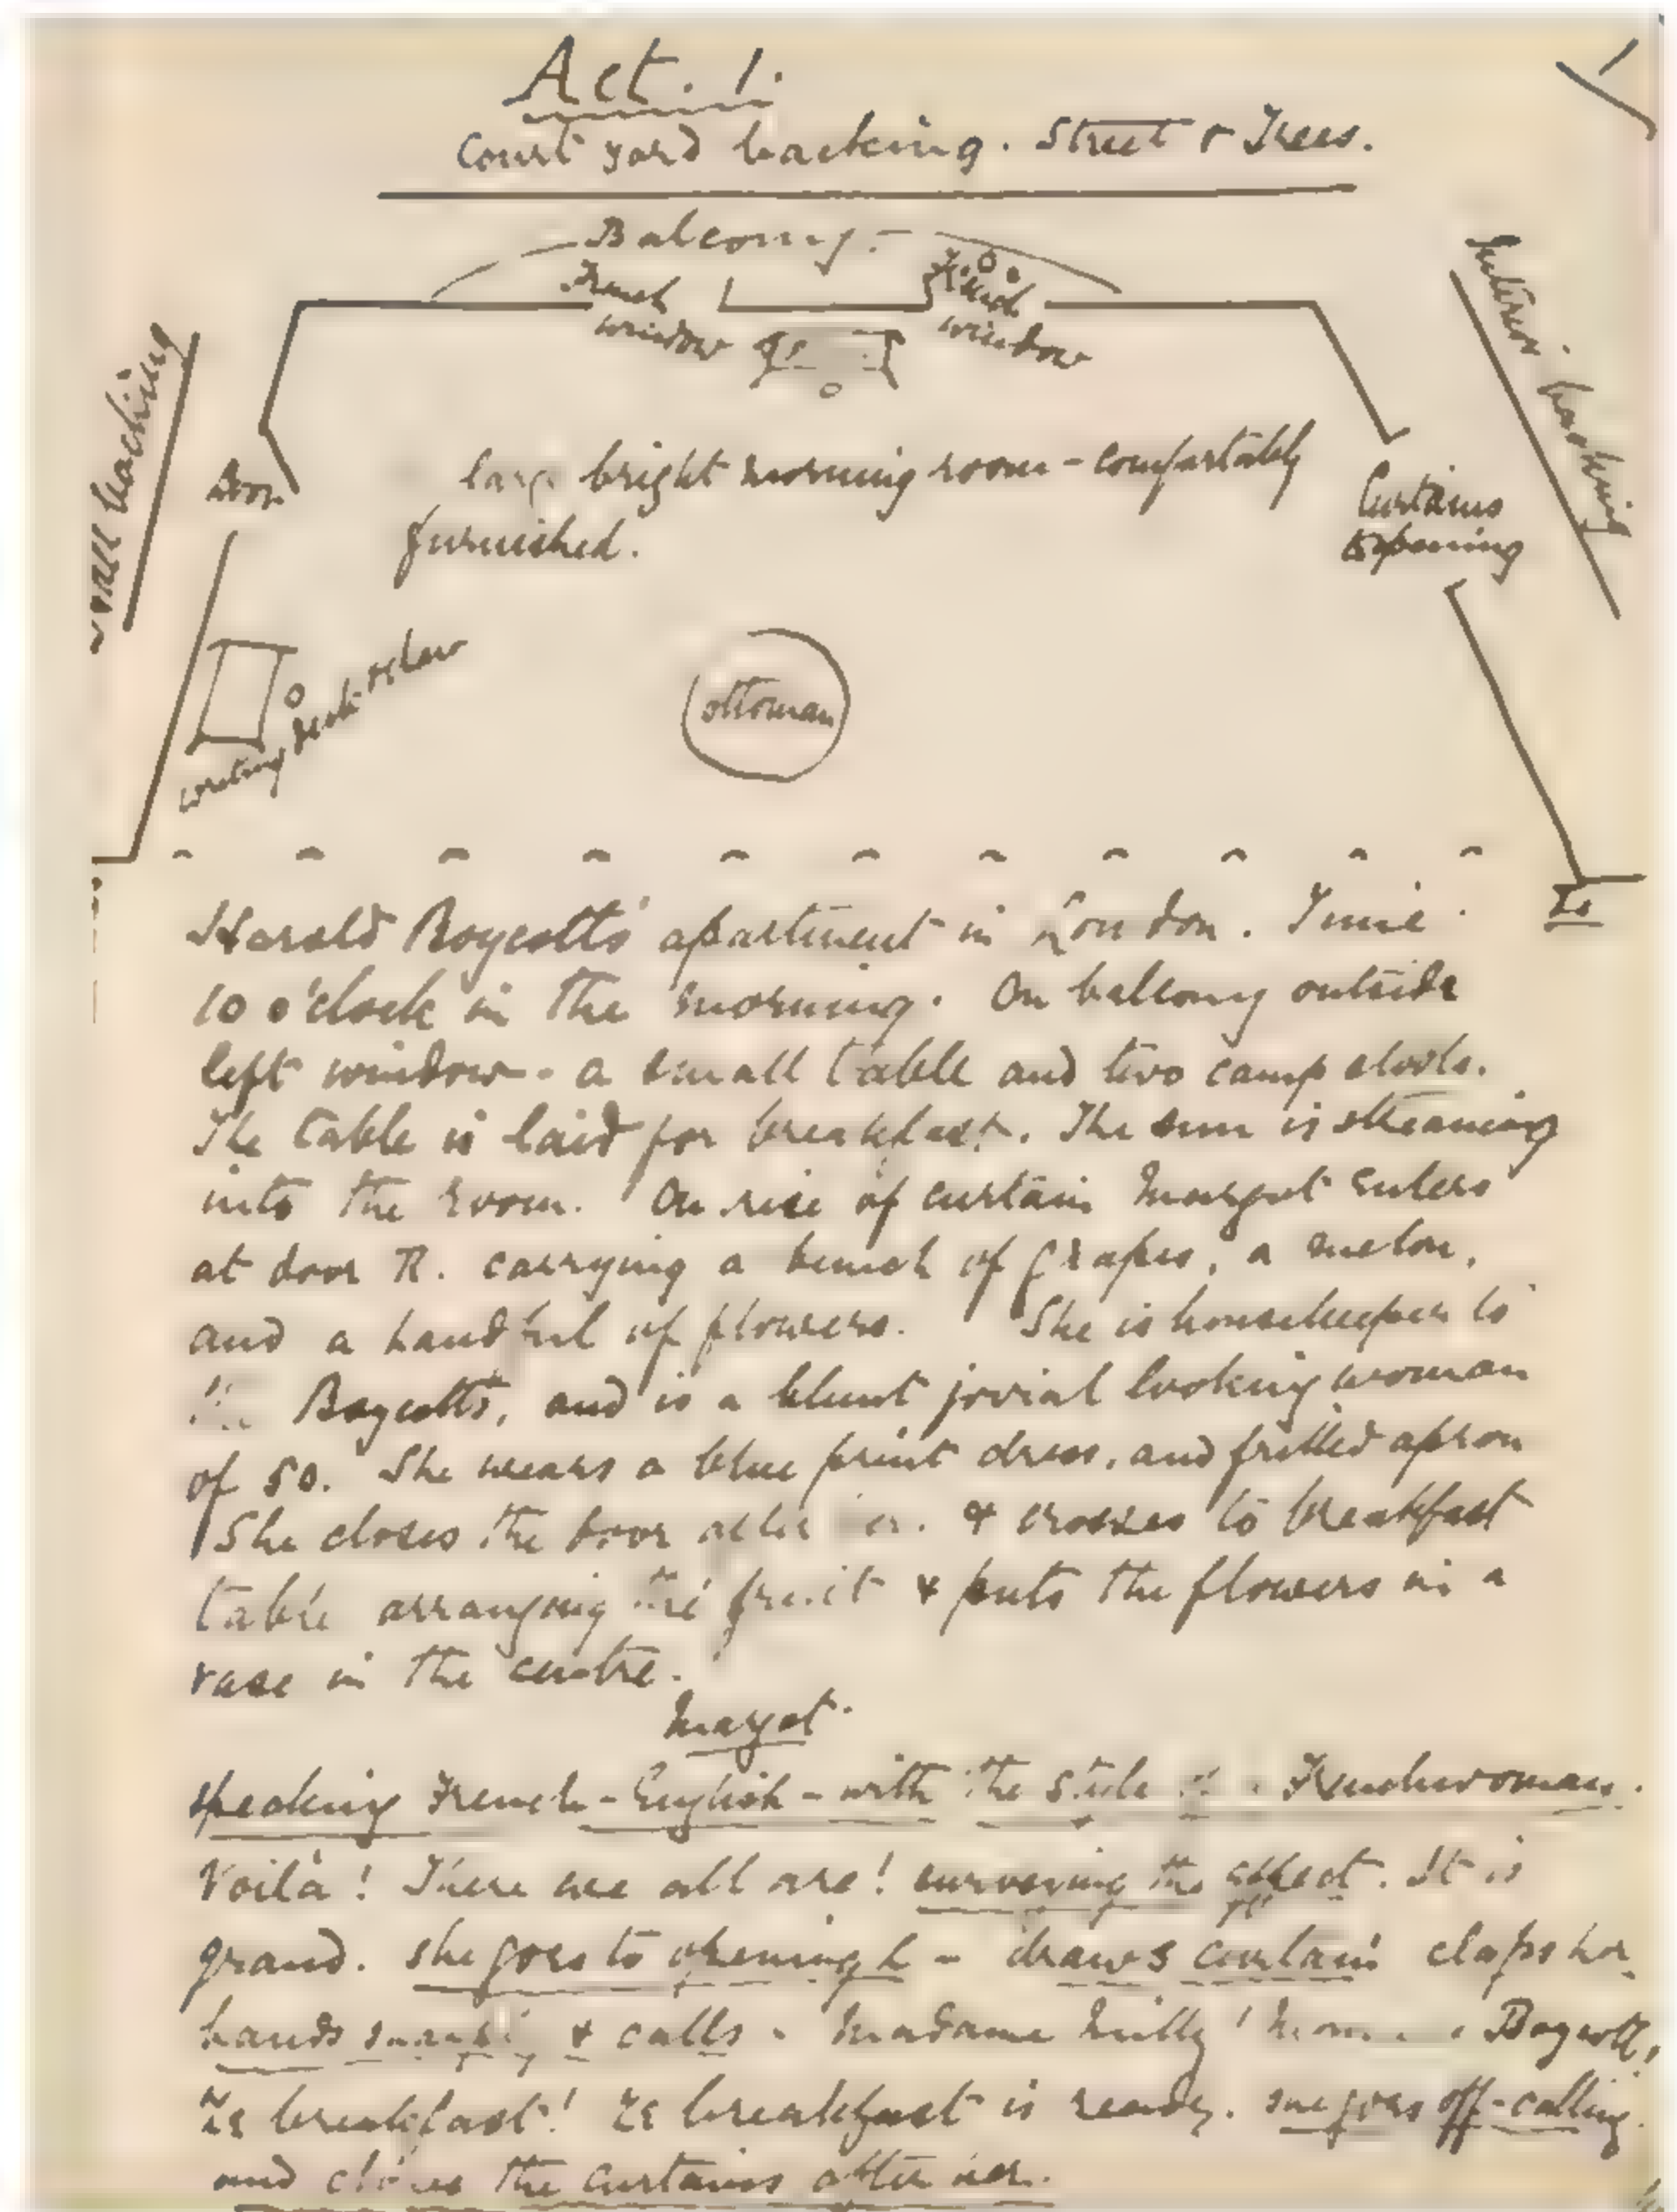 Act. 1.
Court yard backing. Street & Trees.
Balcony.
French window
French window
Wall backing
Interior backing
Door
large bright morning room - comfortably
furnished.
Curtains
opening
writing desk &
ottoman
Harold Boycott's apartment in London. Time
10 o'clock in the morning. On balcony outside
left window - a small table and two camp stools.
The table is laid for breakfast. The sun is streaming
into the room. On rise of curtain Margot enters
at door R. carrying a bunch of grapes, a melon,
and a handful of flowers. She is housekeeper to
the Boycotts, and is a blunt jovial looking woman
of 50. She wears a blue print dress, and frilled apron
She closes the door after her. & crosses to breakfast
table arranging the fruit & puts the flowers in a
vase in the centre.
Margot.
speaking French-English - with the style of a Frenchwoman.
Voilà! There we all are! surveying the effect. It is
grand. she goes to opening L - draws curtain claps her
hands & calls - Madame Milly! Boycott,
Ze breakfast! Ze breakfast is ready. she goes off-calling.
and closes the curtains after her.